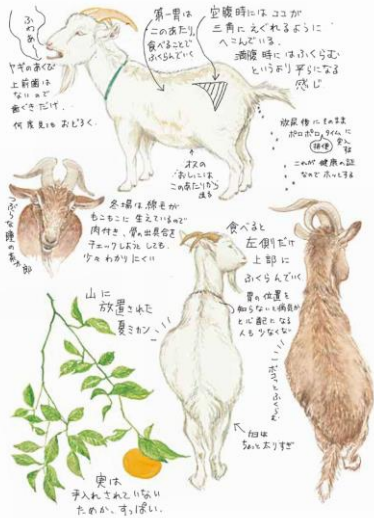 ふわあ〜
ヤギのあくび
上前歯は
ないので
歯ぐきだけ。
何度見てもおどろく。
第一胃は
このあたり。
食べることで
ふくらんでいく
空腹時にはココが
三角にえぐれるように
へこんでいる。
満腹時にはふくらむ
というより平らになる
感じ
放尿後にそのまま
ポロポロタイムに
排便
突入
これが健康の証
なのでホッとする
オスの
おしっこは
このあたりから
出る
つぶらな瞳の
冬場は、綿毛が
もこもこに生えているので
肉付き、骨の出具合を
チェックしようとしても、
少々わかりにくい
食べると
左側だけ
上部に
ふくらんでいく
胃の位置を
知らないと病気か
と心配になる
人も少なくない
ポコッとふくらむ
ちょっと太りすぎ
山に
放置された
夏ミカン
実は
手入れされていない
ためか、すっぱい。